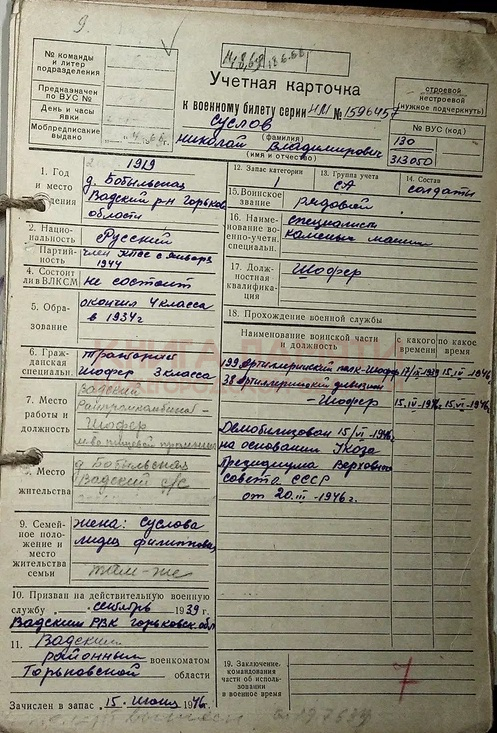 9.
14.8.68 18.6.68
№ команды
и литер
подразделения
Предназначен
по ВУС №
День и часы
явки
Мобпредписание
выдано
Учетная карточка
к военному билету серии НМ № 1596457
Суслов
(фамилия)
Николай Владимирович
(имя и отчество)
строевой
нестроевой
(нужное подчеркнуть)
№ ВУС (код)
130
313050
1. Год
и место
рождения
1919
д. Бобыльская
Вадский р-н Горьков
области
2. Национальность
Русский
3. Партийность
член КПСС с января
1944
4. Состоит
ли в ВЛКСМ
не состоит
5. Образование
окончил 4 класса
в 1934 г
6. Гражданская
специальн.
Шофер 3 класса
7. Место
работы и
должность
Вадский
Райпромкомбинат -
Шофер
8. Место
жительства
д Бобыльская
Вадский с/с
9. Семейное положение и
место
жительства
семьи
жена: Суслова
Лидия Филипповна
там-же
10. Призван на действительную военную
службу сентябрь 1939 г.
Вадским РВК Горьковск. обл
11. Вадским
районным военкоматом
Горьковской области
Зачислен в запас 15. Июня 1946 г.
12. Запас категории
1
13. Группа учета
СА
14. Состав
солдаты
15. Воинское
звание
рядовой
16. Наименование
военно-учетн.
специальн.
специалист
17. Должностная
квалификация
Шофер
18. Прохождение военной службы
Наименование воинской части
и должность
с какого
время
по какое
время
199 Артиллерийский полк-Шофер
15.III-1946
38 Артиллерийский дивизион
-Шофер
15.IV-1946 15.VI-1946
Демобилизован 15/VI-1946
на основании Указа
Президиума Верховно
совета СССР
от 20.III-1946 г.
19. Заключение
командования
части об использовании
в военное время
7
КНИГА ПАМЯТИ